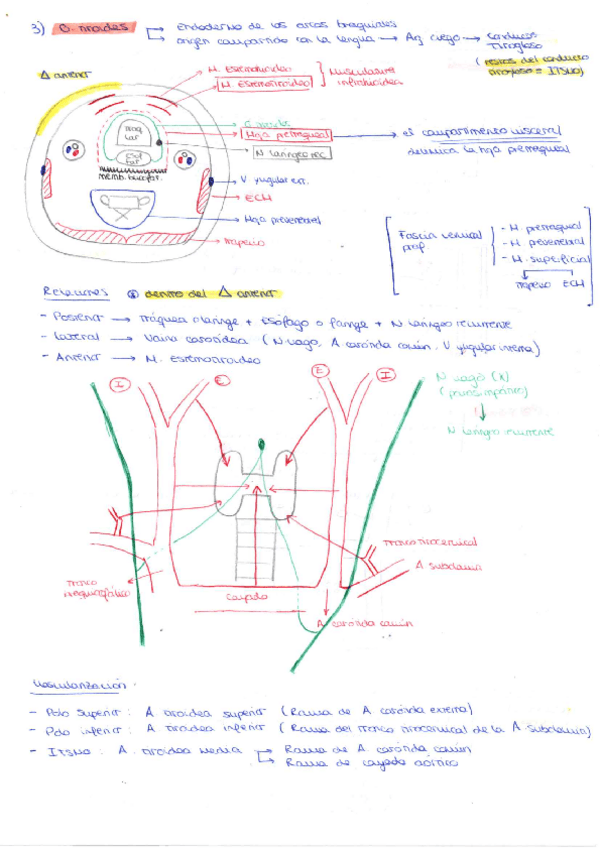 3) G. tiroides
Endodermo de los arcos braquiales
origen compartido con la lengua → Agj ciego → Conducto Tirogloso
(restos del conducto tirogloso = ITSMO)
Δ anterior
M. Esternohioideo
M. Esternotiroideo
Musculatura infrahioidea
Hoja pretraqueal → el compartimento visceral
delimita la hoja pretraqueal
N laringeo rec.
memb. bucofar.
V. yugular ext.
ECH
Hoja prevertebral
Trapecio
Fascia cervical prof
- H. pretraqueal
- H. prevertebral
- H. superficial
Trapecio ECH
Relaciones dentro del Δ anterior
- Posterior → tráquea o laringe + Esófago o faringe + N laringeo recurrente
- Lateral → Vaina carotídea (N vago, A carótida común, V yugular interna)
- Anterior → M. esternotiroideo
I E E I
N vago (X)
(parasimpático)
N laringeo recurrente
Tronco tirocervical
A subclavia
Tronco braquiocefálico
Cayado
A carótida común
Vascularización
- Polo Superior: A tiroidea superior (Rama de A carótida externa)
- Polo inferior: A tiroidea inferior (Rama del tronco tirocervical de la A subclavia)
- ITSMO: A. tiroidea media → Rama de A carótida común
Rama de cayado aórtico